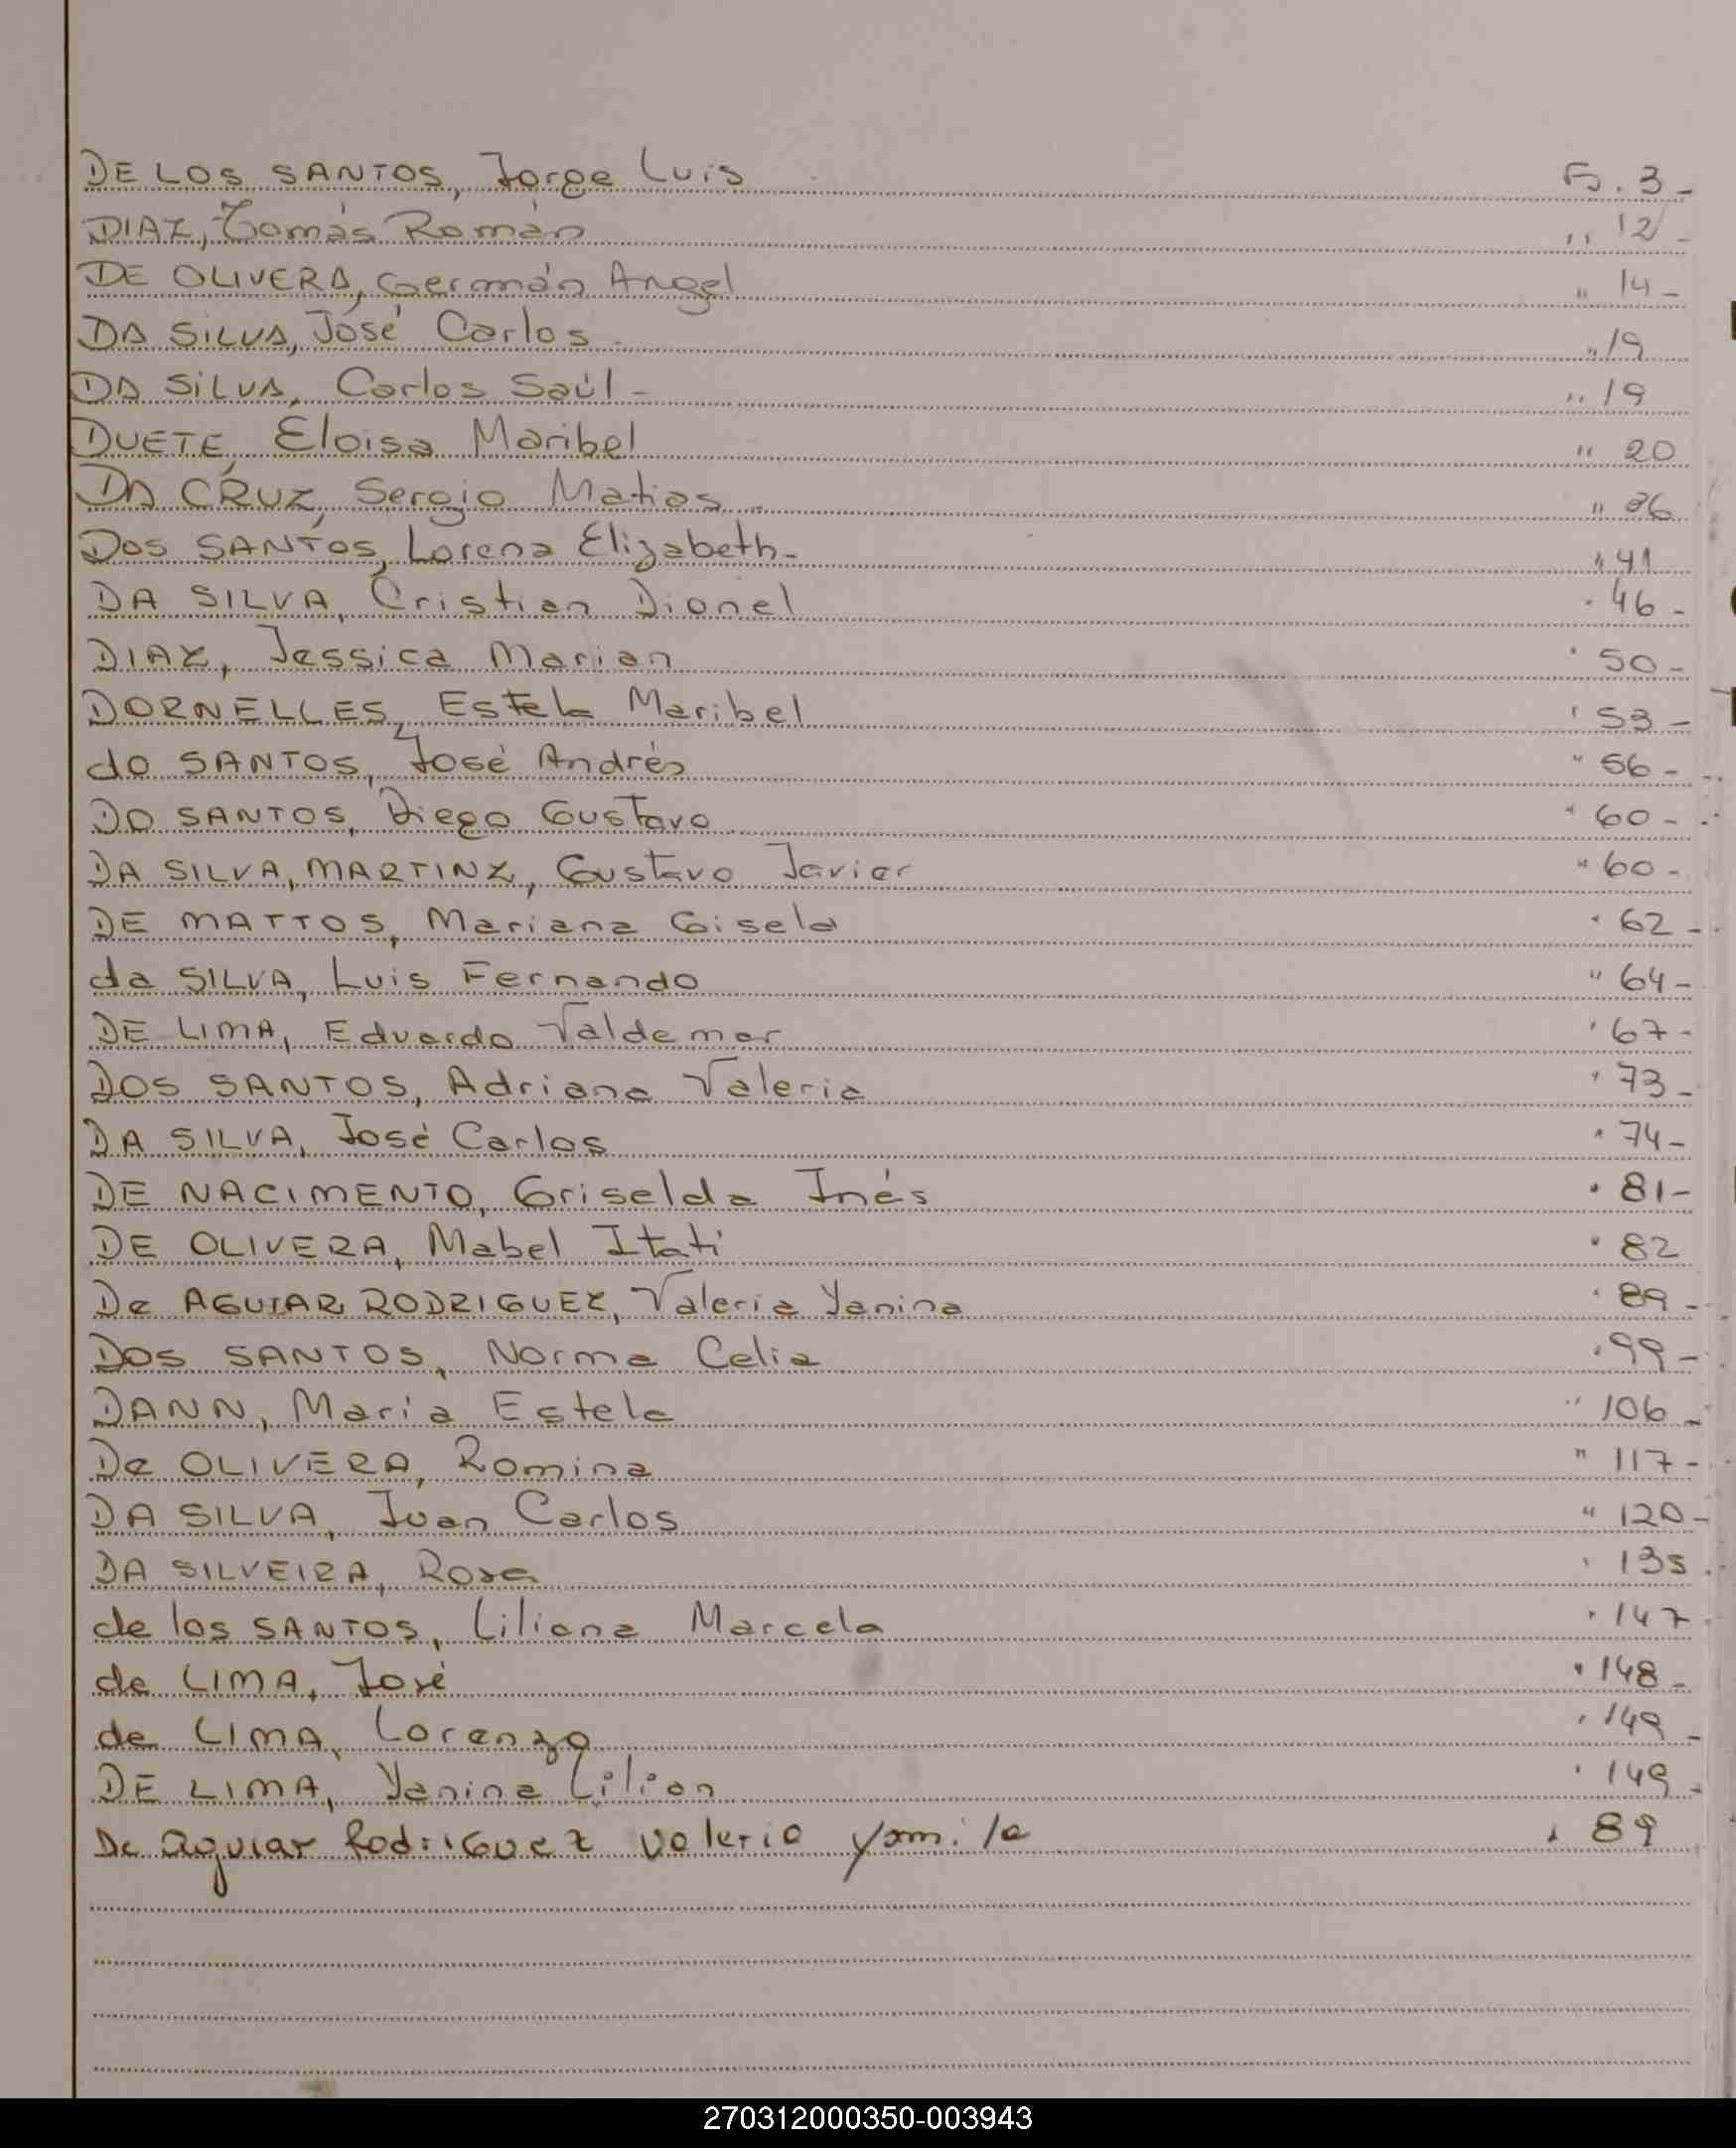 DE LOS SANTOS, Jorge Luis Fs. 3 -
DIAZ, Tomás Román " 12 -
DE OLIVERA, Germán Angel " 14 -
DA SILVA, José Carlos - " 19
DA SILVA, Carlos Saúl - " 19
DUETE, Eloisa Maribel " 20
DA CRUZ, Sergio Matias - " 36
Dos SANTOS, Lorena Elizabeth - " 41
DA SILVA, Cristian Dionel " 46 -
DIAZ, Jessica Marian " 50 -
DORNELLES, Estela Maribel " 53 -
do SANTOS, José Andrés " 56 -
DO SANTOS, Diego Gustavo " 60 -
DA SILVA, MARTINZ, Gustavo Javier " 60 -
DE MATTOS, Mariana Gisela " 62 -
da SILVA, Luis Fernando " 64 -
DE LIMA, Eduardo Valdemar " 67 -
DOS SANTOS, Adriana Valeria " 73 -
DA SILVA, José Carlos " 74 -
DE NACIMENTO, Griselda Inés " 81 -
DE OLIVERA, Mabel Itatí " 82
De AGUIAR RODRIGUEZ, Valeria Yanina " 89 -
DOS SANTOS, Norma Celia " 99 -
DANN, María Estela " 106 -
De OLIVERA, Romina " 117 -
DA SILVA, Juan Carlos " 120 -
DA SILVEIRA, Rosa " 135 -
de los SANTOS, Liliana Marcela " 147
de LIMA, José " 148 -
de LIMA, Lorenzo " 149 -
DE LIMA, Yanina Lilian " 149 -
De aguiar Rodriguez valeria yamila " 89
270312000350-003943